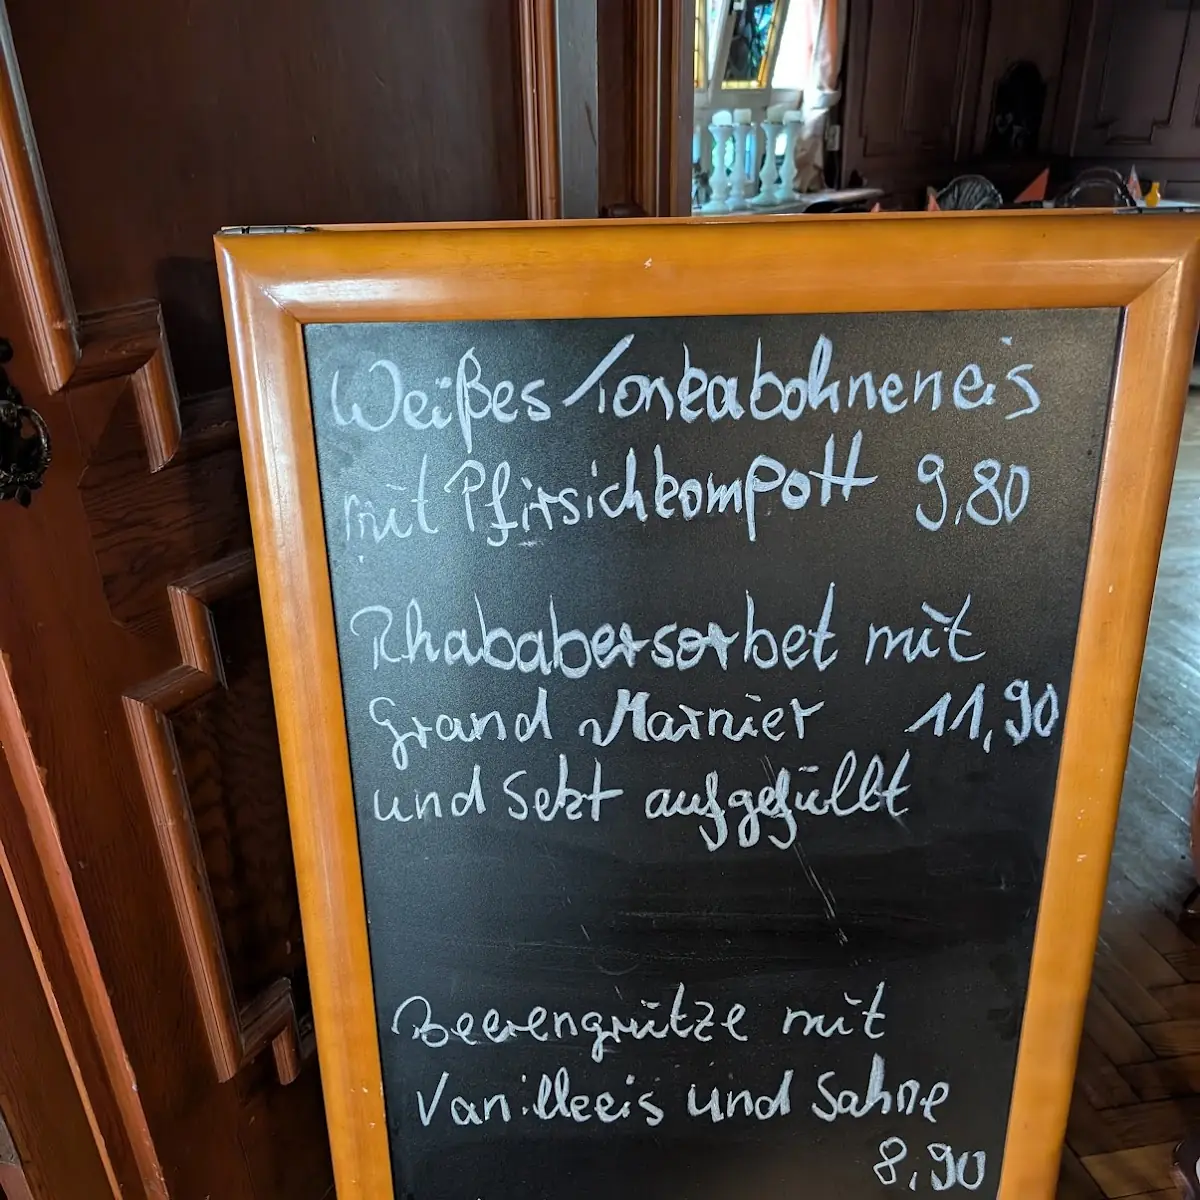 Weißes Tonkabohneneis
mit Pfirsichkompott 9,80
Rhababersorbet mit
Grand Marnier 11,90
und Sekt aufgefüllt
Beerengrütze mit
Vanilleeis und Sahne
8,90